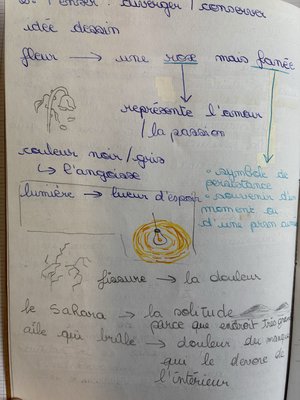 2. Penser : diverger / converser
idée dessin
fleur → une rose mais fanée
représente l'amour
/ la passion
couleur noir/gris
↳ l'angoisse
• symbole de
persistance
• souvenir d'un
moment ou
d'une
lumière → lueur d'espoir
fissure → la douleur
le Sahara → la solitude
parce que endroit très grand
aile qui brûle → douleur du manque
qui le dévore de
l'intérieur